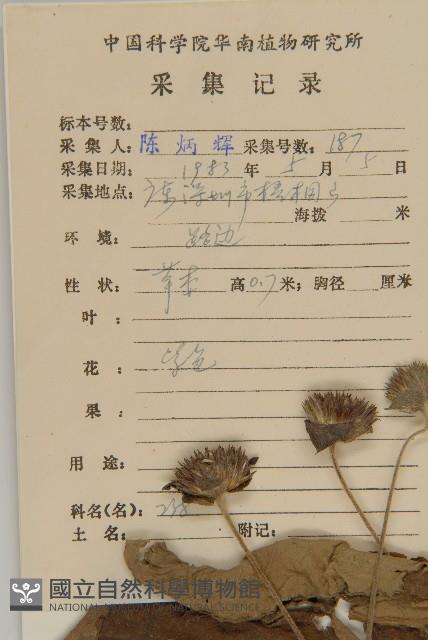 中国科学院华南植物研究所
采集记录
标本号数:
采集人: 陈炳辉 采集号数: 187
采集日期: 1983 年 5 月 5 日
采集地点: 广东深圳市梧桐山
海拨 米
环境: 路边
性状: 草本 高 0.7 米; 胸径 厘米
叶:
花: 紫色
果:
用途:
科名(名): 238
土名: 附记:
國立自然科學博物館
NATIONAL MUSEUM OF NATURAL SCIENCE